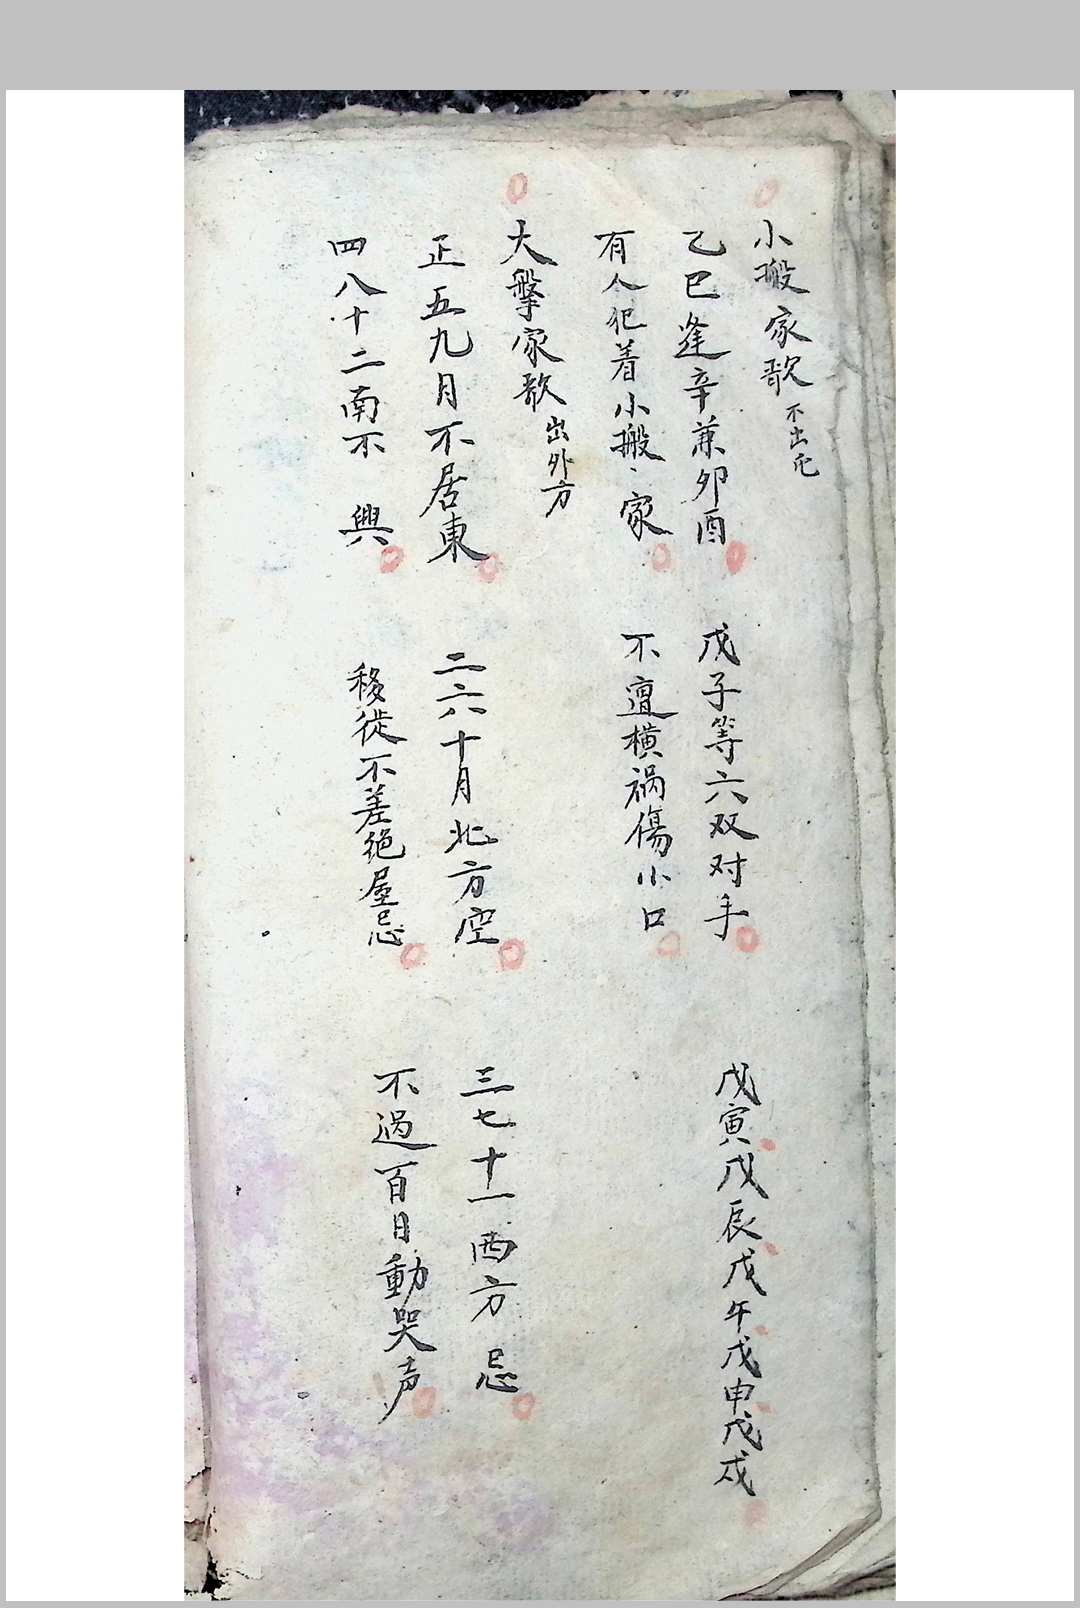 小搬家歌 不出宅
乙巳逢辛兼卯酉 戊子等六双对手 戊寅戊辰戊午戊申戊戌
有人犯着小搬家 不遭横祸傷小口
大搫家歌 出外方
正五九月不居東 二六十月北方空 三七十一西方忌
四八十二南不興 移徙不差絶屋忌 不過百日動哭声